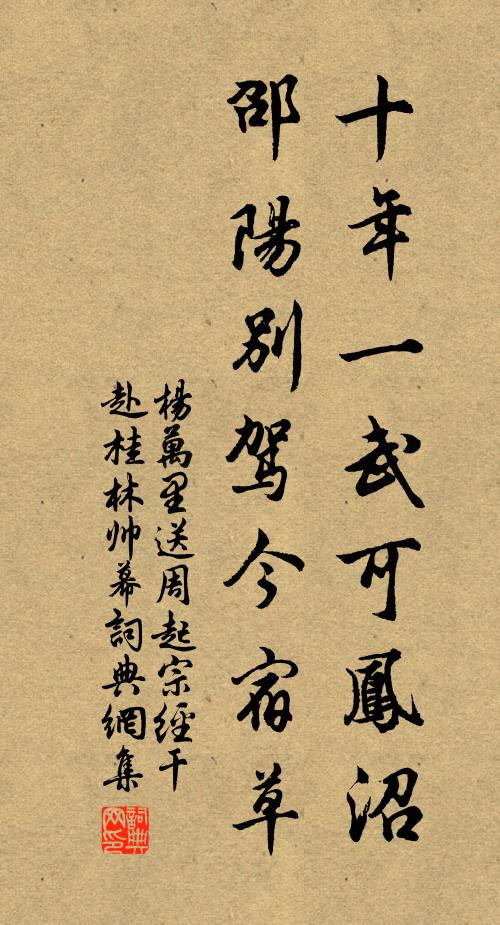 十年一武可鳳沼
邵陽別駕今宿草
楊萬里送周起宗經干
赴桂林帅幕詞典網集
詞典网印